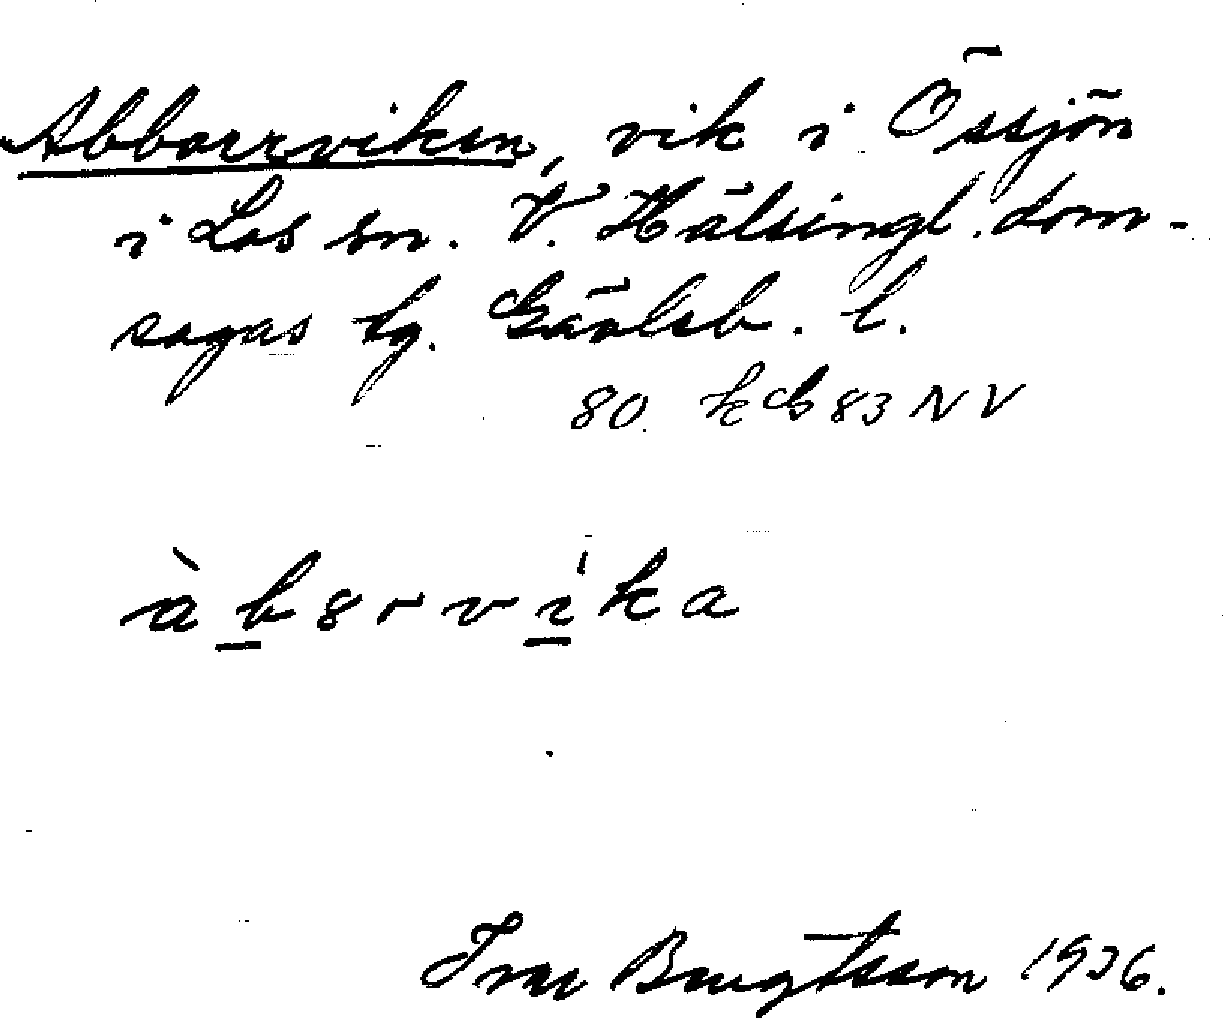 Abborrviken, vik i Össjön
i Los sn. V. Hälsingl. dom-
sagas tg. Gävleb. l.
80. k G 83 NV
àb8rvíka
Ivar Bengtsson 1936.